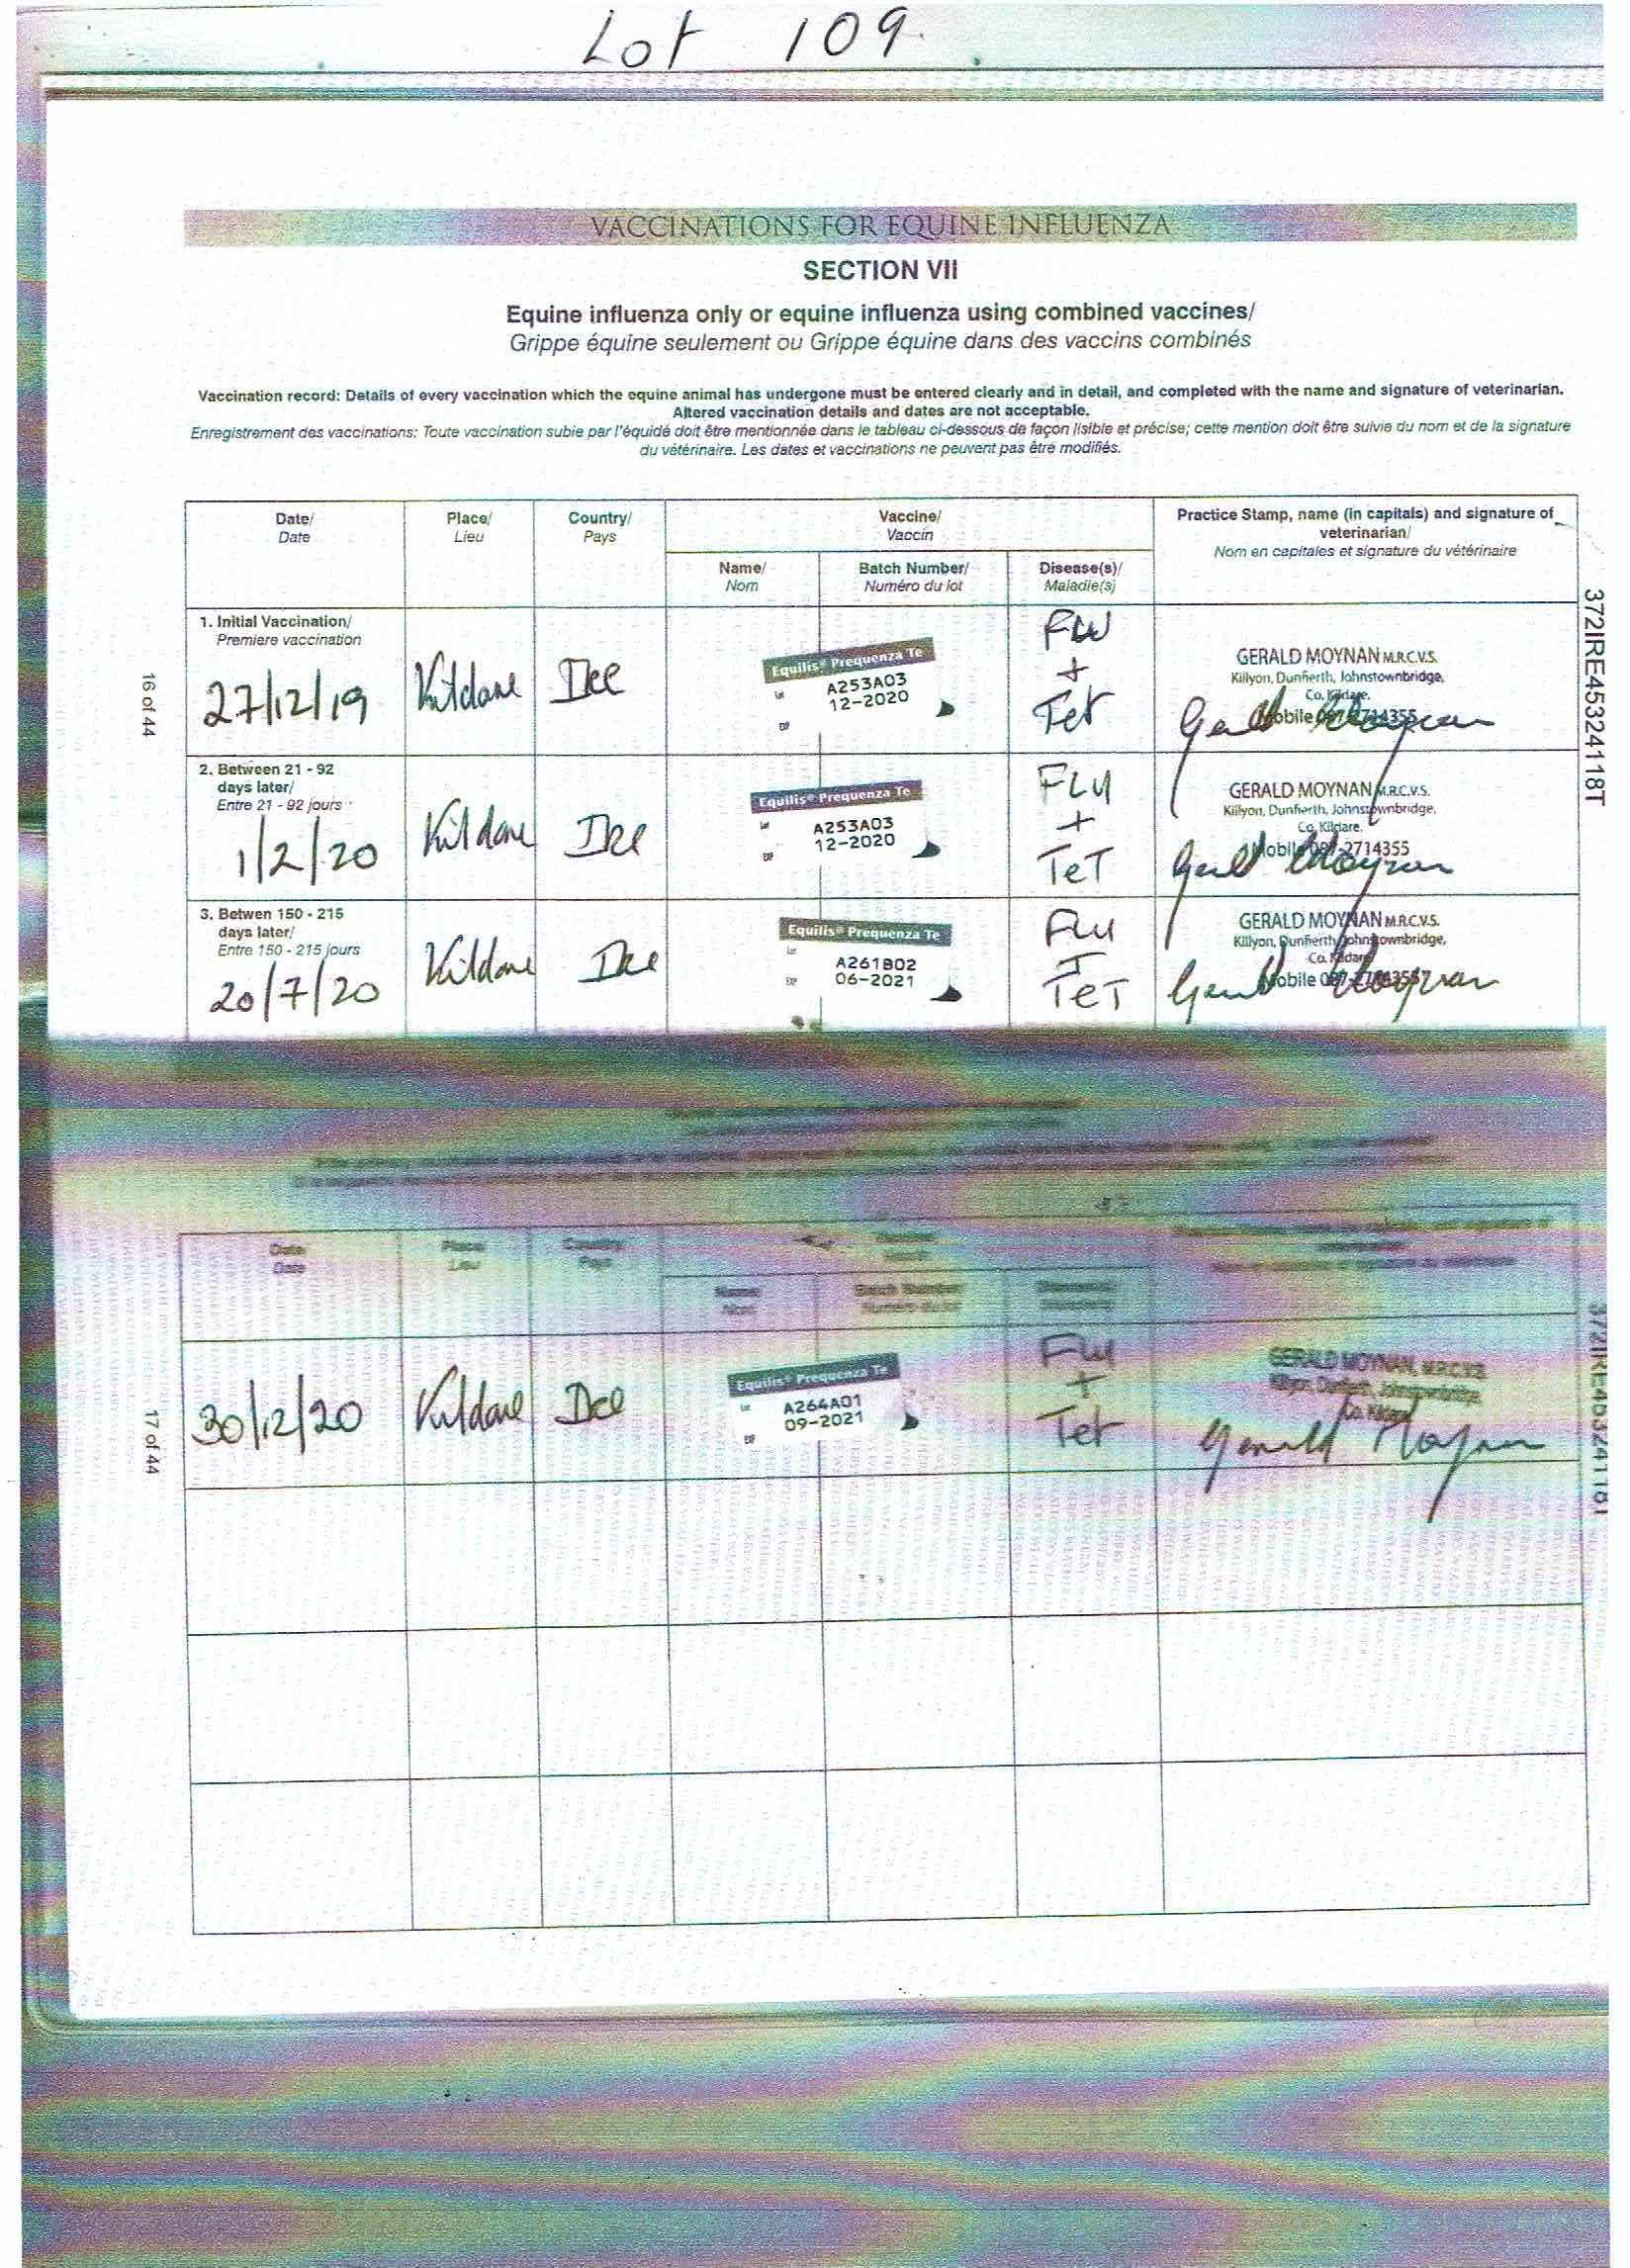 Lot 109.
VACCINATIONS FOR EQUINE INFLUENZA
SECTION VII
Equine influenza only or equine influenza using combined vaccines/
Grippe équine seulement ou Grippe équine dans des vaccins combinés
Vaccination record: Details of every vaccination which the equine animal has undergone must be entered clearly and in detail, and completed with the name and signature of veterinarian.
Altered vaccination details and dates are not acceptable.
Enregistrement des vaccinations: Toute vaccination subie par l'équidé doit être mentionnée dans le tableau ci-dessous de façon lisible et précise; cette mention doit être suivie du nom et de la signature
du vétérinaire. Les dates et vaccinations ne peuvent pas être modifiés.
Date/
Date
Place/
Lieu
Country/
Pays
Vaccine/
Vaccin
Name/
Nom
Batch Number/
Numéro du lot
Disease(s)/
Maladie(s)
Practice Stamp, name (in capitals) and signature of
veterinarian/
Nom en capitales et signature du vétérinaire
1. Initial Vaccination/
Premiere vaccination
27/12/19
Kildare
Ire
Equilis® Prequenza Te
Lot A253A03
EXP 12-2020
Flu
+
Tet
GERALD MOYNAN M.R.C.V.S.
Killyon, Dunfierth, Johnstownbridge,
Co. Kildare.
Mobile 087-2714355
Gerald Moynan
2. Between 21 - 92
days later/
Entre 21 - 92 jours
1/2/20
Kildare
Ire
Equilis® Prequenza Te
Lot A253A03
EXP 12-2020
FLU
+
TeT
GERALD MOYNAN M.R.C.V.S.
Killyon, Dunfierth, Johnstownbridge,
Co. Kildare.
Mobile 087-2714355
Gerald Moynan
3. Betwen 150 - 215
days later/
Entre 150 - 215 jours
20/7/20
Kildare
Ire
Equilis® Prequenza Te
Lot A261B02
EXP 06-2021
Flu
+
TeT
GERALD MOYNAN M.R.C.V.S.
Killyon, Dunfierth, Johnstownbridge,
Co. Kildare
Mobile
Gerald Moynan
16 of 44
372IRE45324118T
Date
Date
Place
Lieu
Country
Pays
Name
Nom
Batch Number
Numéro du lot
30/12/20
Kildare
Ire
Equilis® Prequenza Te
Lot A264A01
EXP 09-2021
Flu
+
Tet
GERALD MOYNAN, M.R.C.V.S.
Killyon, Dunfierth, Johnstownbridge,
Co. Kildare
Gerald Moynan
17 of 44
372IRE45324118T